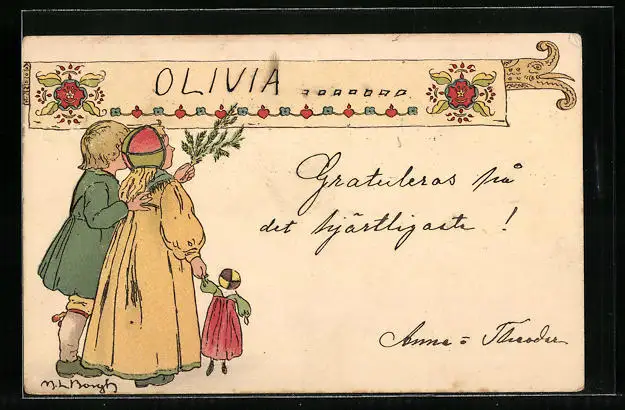 OLIVIA
Gratuleras på
det hjärtligaste !
Anna = Theodor